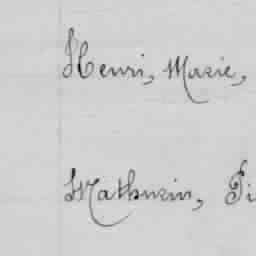 Henri, Marie,
Mathurin, Pi